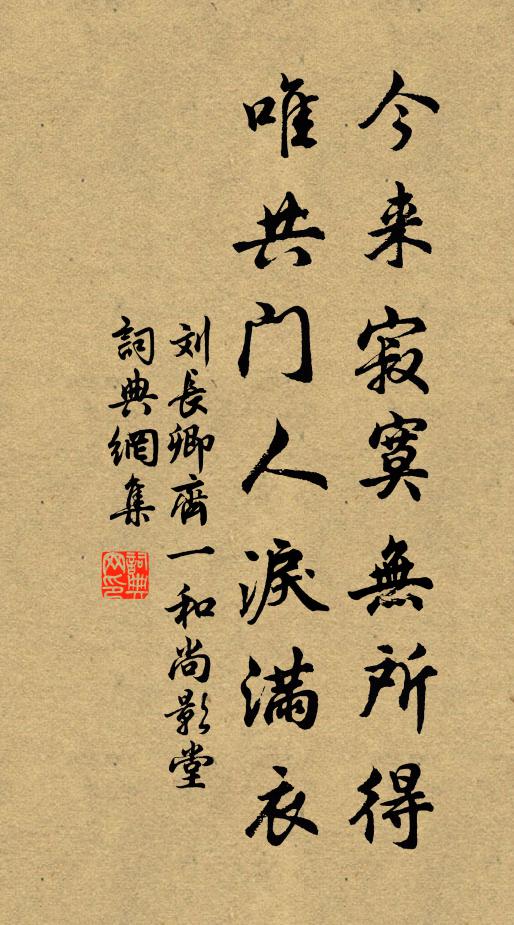 今来寂寞無所得
唯共门人淚滿衣
刘長卿齊一和尚影堂
詞典網集
詞典網印